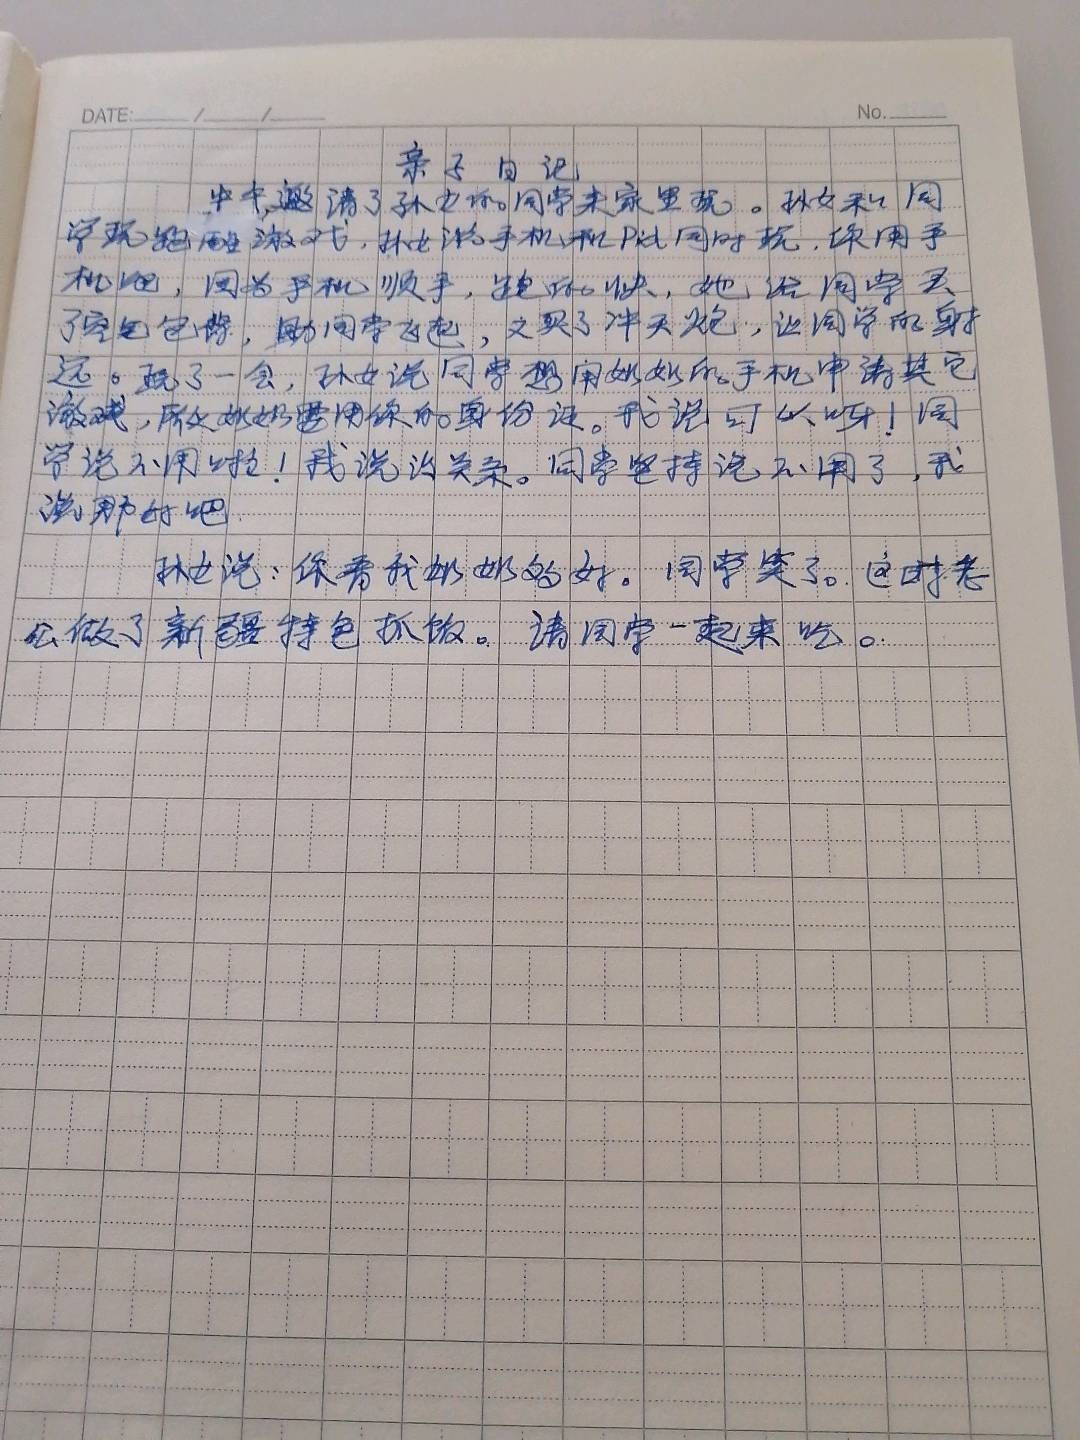 DATE: / / No.
亲子日记
中午,邀请了孙女的同学来家里玩。孙女和同
学玩跑酷游戏,孙女说手机和Pad同时玩,你用手
机吧,因为手机顺手,跑的快,她给同学买
了空包,助同学飞起,又买了冲天炮,让同学的射
远。玩了一会,孙女说同学想用奶奶的手机申请其它
游戏,所以奶奶要用你的身份证。我说可以呀!同
学说不用啦!我说没关系。同学坚持说不用了,我
说那好吧
孙女说:你看我奶奶多好。同学笑了。这时老
公做了新疆特色抓饭。请同学一起来吃。